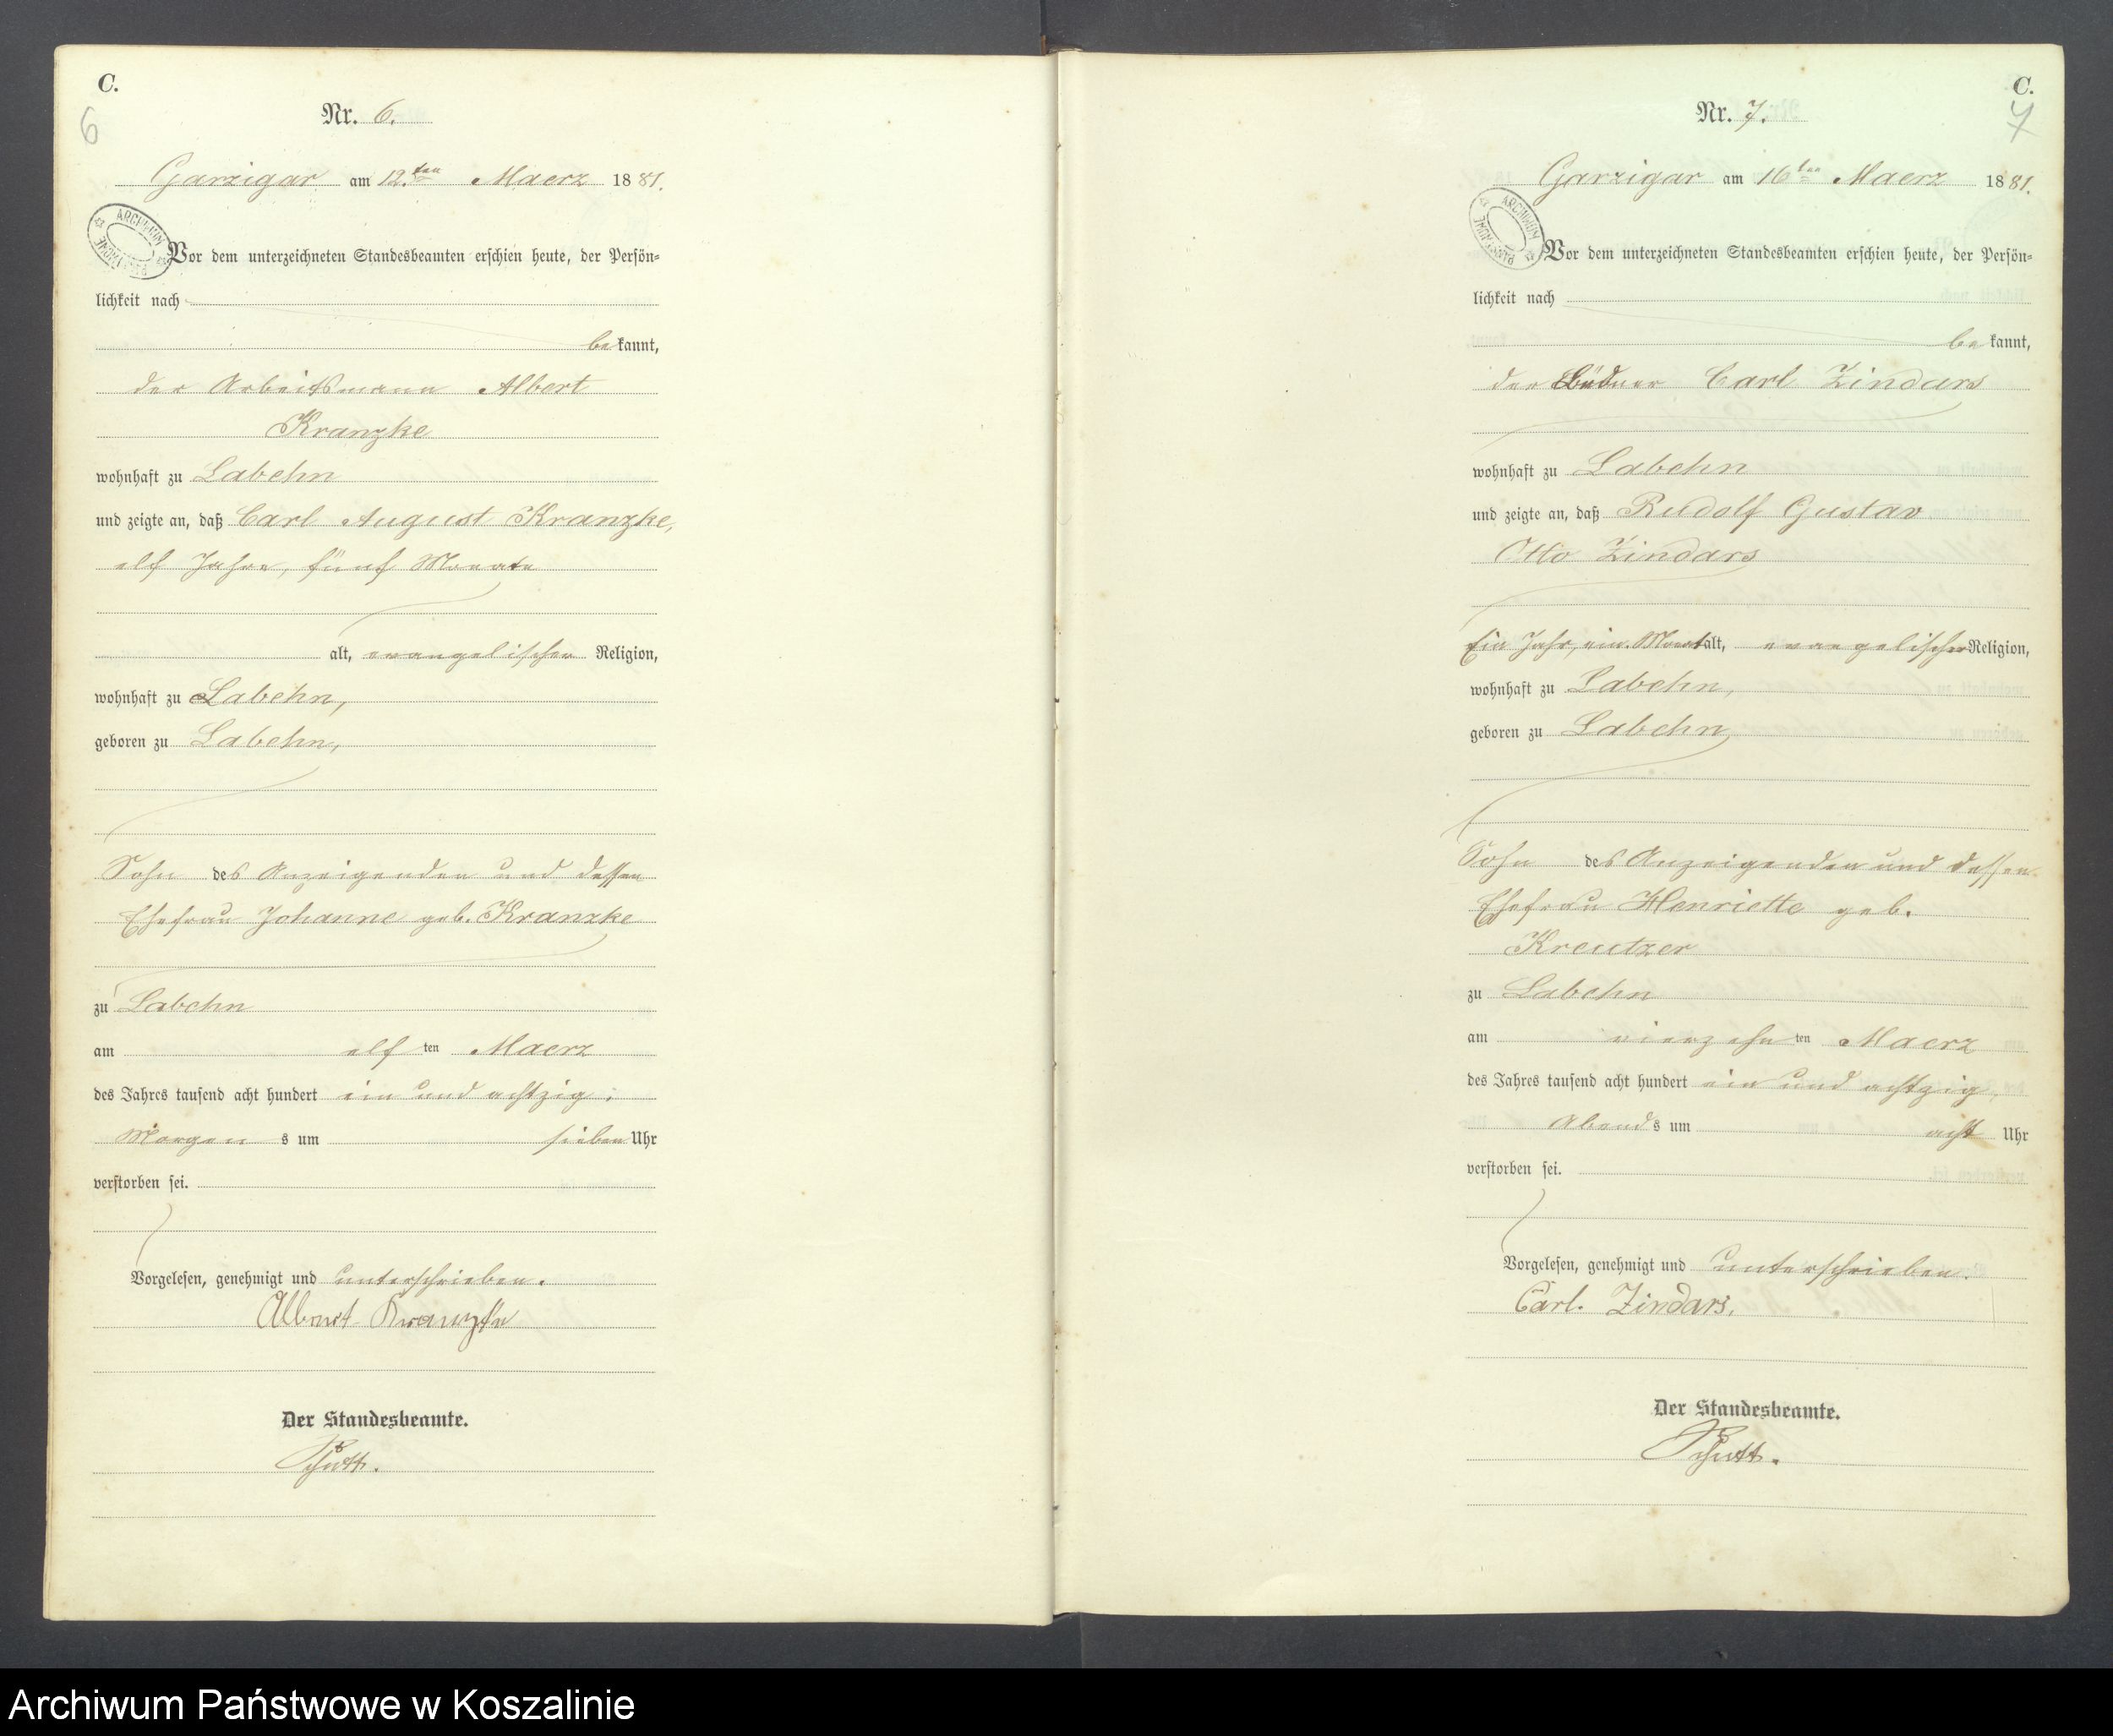 C.
6
Nr. 6.
Garzigar am 12.ten Maerz 1881.
ARCHIWUM PAŃSTWOWE
Vor dem unterzeichneten Standesbeamten erschien heute, der Persön=
lichkeit nach
bekannt,
der Arbeitsmann Albert
Kranzke
wohnhaft zu Labehn
und zeigte an, daß Carl August Kranzke,
elf Jahre, fünf Monate
alt, evangelischer Religion,
wohnhaft zu Labehn,
geboren zu Labehn,
Sohn des Anzeigenden und dessen
Ehefrau Johanne geb. Kranzke
zu Labehn
am elf ten Maerz
des Jahres tausend acht hundert ein und achtzig,
Morgen s um sieben Uhr
verstorben sei.
Vorgelesen, genehmigt und unterschrieben.
Albert Kranzke
Der Standesbeamte.
C.
7
Nr. 7.
Garzigar am 16ten Maerz 1881.
ARCHIWUM PAŃSTWOWE
Vor dem unterzeichneten Standesbeamten erschien heute, der Persön=
lichkeit nach
bekannt,
der Büdner Carl Zindars
wohnhaft zu Labehn
und zeigte an, daß Rudolf Gustav
Otto Zindars
Ein Jahr, ein Monat alt, evangelischer Religion,
wohnhaft zu Labehn,
geboren zu Labehn,
Sohn des Anzeigenden und dessen
Ehefrau Henriette geb.
Kreutzer
zu Labehn
am vierzehn ten Maerz
des Jahres tausend acht hundert ein und achtzig,
Abends um acht Uhr
verstorben sei.
Vorgelesen, genehmigt und unterschrieben.
Carl. Zindars.
Der Standesbeamte.
Archiwum Państwowe w Koszalinie